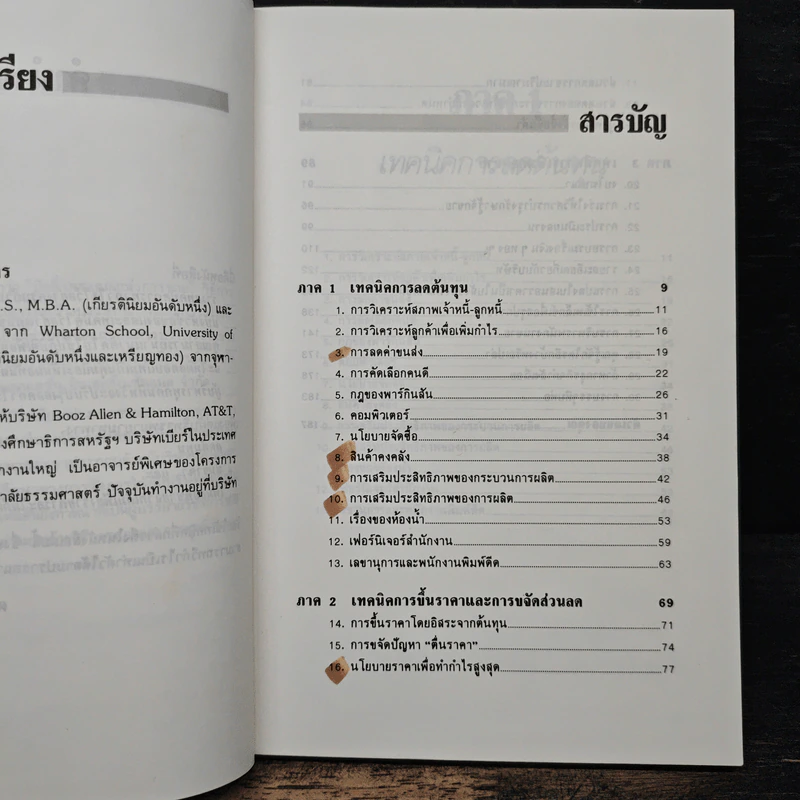 รียง
ร
.S., M.B.A. (เกียรตินิยมอันดับหนึ่ง) และ
จาก Wharton School, University of
นิยมอันดับหนึ่งและเหรียญทอง) จากจุฬา-
ห้บริษัท Booz Allen & Hamilton, AT&T,
งศึกษาธิการสหรัฐฯ บริษัทเบียร์ในประเทศ
างานใหญ่ เป็นอาจารย์พิเศษของโครงการ
าลัยธรรมศาสตร์ ปัจจุบันทำงานอยู่ที่บริษัท
สารบัญ
ภาค 1 เทคนิคการลดต้นทุน 9
1. การวิเคราะห์สภาพเจ้าหนี้-ลูกหนี้ 11
2. การวิเคราะห์ลูกค้าเพื่อเพิ่มกำไร 16
3. การลดค่าขนส่ง 19
4. การคัดเลือกคนดี 22
5. กฎของพาร์กินสัน 26
6. คอมพิวเตอร์ 31
7. นโยบายจัดซื้อ 34
8. สินค้าคงคลัง 38
9. การเสริมประสิทธิภาพของกระบวนการผลิต 42
10. การเสริมประสิทธิภาพของการผลิต 46
11. เรื่องของห้องน้ำ 53
12. เฟอร์นิเจอร์สำนักงาน 59
13. เลขานุการและพนักงานพิมพ์ดีด 63
ภาค 2 เทคนิคการขึ้นราคาและการขจัดส่วนลด 69
14. การขึ้นราคาโดยอิสระจากต้นทุน 71
15. การขจัดปัญหา "ตื่นราคา" 74
16. นโยบายราคาเพื่อทำกำไรสูงสุด 77